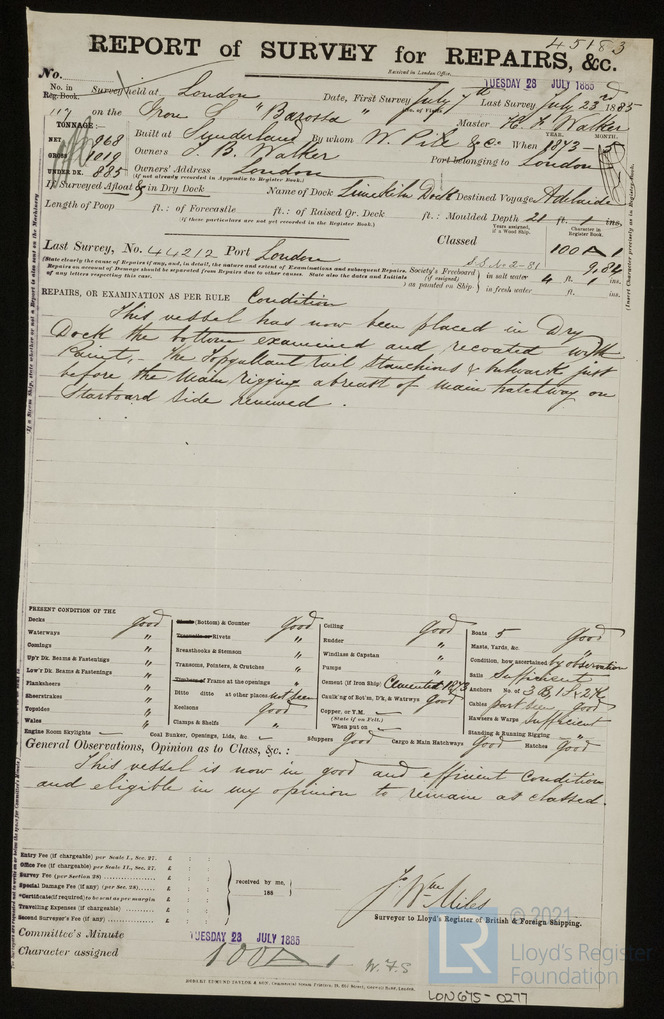 45183
REPORT of SURVEY for REPAIRS, &c.
No.
Received in London Office,
TUESDAY 28 JULY 1885
No. in Reg. Book. Survey held at London Date, First Survey July 7th Last Survey July 23rd 1885
117 on the Iron "Barossa" Master
TONNAGE:—
NET 968
GROSS 1019
UNDER DK. 885
Built at Sunderland By whom W. Pile & Co. When 1873 — 5
YEAR. MONTH.
Owners J B. Walker Port belonging to London
Owners' Address London
(if not already recorded in Appendix to Register Book.)
If Surveyed Afloat & in Dry Dock Name of Dock Limekiln Dock Destined Voyage Adelaide
Length of Poop ft.: of Forecastle ft.: of Raised Qr. Deck ft.: Moulded Depth 21 ft. 1 ins.
(if these particulars are not yet recorded in the Register Book.)
Years assigned, if a Wood Ship. Character in Register Book.
Last Survey, No. 44212 Port London Classed 100 A 1
S.S. No 2-81 9,84
(State clearly the cause of Repairs if any, and, in detail, the nature and extent of Examinations and subsequent Repairs.
Repairs on account of Damage should be separated from Repairs due to other causes. State also the dates and Initials
of any letters respecting this case.
Society's Freeboard (if assigned) as painted on Ship in salt water 4 ft. 1 ins.
in fresh water
REPAIRS, OR EXAMINATION AS PER RULE Condition
This vessel has now been placed in Dry
Dock the bottom examined and recoated with
paint,- The Topgallant rail stanchions & bulwark just
before the Main rigging abreast of Main hatchway on
Starboard Side renewed.
PRESENT CONDITION OF THE
Decks Good
Waterways "
Comings "
Up'r Dk. Beams & Fastenings "
Low'r Dk. Beams & Fastenings "
Planksheers "
Sheerstrakes "
Topsides "
Wales "
Engine Room Skylights —
(Bottom) & Counter Good
Rivets "
Breasthooks & Stemson "
Transoms, Pointers, & Crutches "
Timbers of Frame at the openings "
Ditto ditto at other places not seen
Keelsons Good
Clamps & Shelfs "
Coal Bunker, Openings, Lids, &c. —
Ceiling Good
Rudder "
Windlass & Capstan "
Pumps "
Cement (if Iron Ship) Cemented 1873
Caulk'ng of Bot'm, D'k, & Watrwys Good
Copper, or Y.M. —
(State if on Felt.)
When put on —
Scuppers Good Cargo & Main Hatchways Good Hatches Good
Boats 5 Good
Masts, Yards, &c. "
Condition, how ascertained by observation
Sails Sufficient
Anchors No. of 3 B 1 S & 2 K
Cables part seen good
Hawsers & Warps Sufficient
Standing & Running Rigging "
General Observations, Opinion as to Class, &c. :
This vessel is now in good and efficient Condition
and eligible in my opinion to remain as classed.
Entry Fee (if chargeable) per Scale I., Sec. 27. £ : :
Office Fee (if chargeable) per Scale II., Sec. 27. £ : :
Survey Fee (per Section 28) £ : :
Special Damage Fee (if any) (per Sec. 28) £ : :
Certificate (if required) to be sent as per margin
Travelling Expenses (if chargeable) £ : :
Second Surveyor's Fee (if any) £ : :
received by me,
188
Miles
Surveyor to Lloyd's Register of British & Foreign Shipping.
Committee's Minute TUESDAY 28 JULY 1885
Character assigned 100 A 1
W.F.S
© 2021
LR
Lloyd's Register
Foundation
LON675-0277